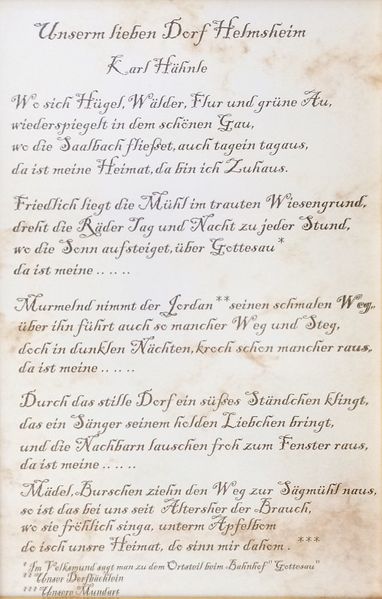 Unserm lieben Dorf Helmsheim
Karl Hähnle
Wo sich Hügel, Wälder, Flur und grüne Au,
wiederspiegelt in dem schönen Gau,
wo die Saalbach fließet, auch tagein tagaus,
da ist meine Heimat, da bin ich Zuhaus.
Friedlich liegt die Mühl im trauten Wiesengrund,
dreht die Räder Tag und Nacht zu jeder Stund,
wo die Sonn aufsteiget, über Gottesau*
da ist meine .. .. ..
Murmelnd nimmt der Jordan **seinen schmalen Weg,
über ihn führt auch so mancher Weg und Steg,
doch in dunklen Nächten, kroch schon mancher raus,
da ist meine .. .. ..
Durch das stille Dorf ein süßes Ständchen klingt,
das ein Sänger seinem holden Liebchen bringt,
und die Nachbarn lauschen froh zum Fenster raus,
da ist meine .. .. ..
Mädel, Burschen ziehn den Weg zur Sägmühl naus,
so ist das bei uns seit Altersher der Brauch,
wo sie fröhlich singa, unterm Apfelbom
do isch unsre Heimat, do sinn mir dahom . ***
* Im Volksmund sagt man zu dem Ortsteil beim Bahnhof "Gottesau"
** Unser Dorfbächlein
*** Unsere Mundart